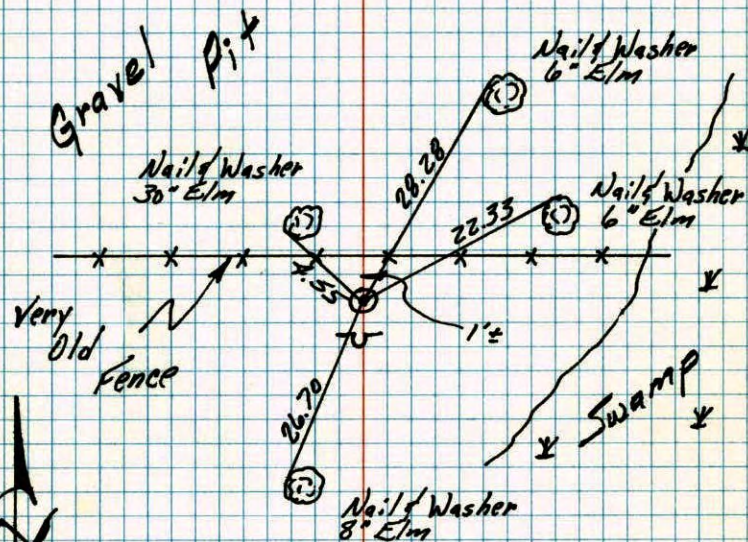 Gravel Pit
Nail & Washer
6" Elm
Nail & Washer
30" Elm
28.28
Nail & Washer
6" Elm
22.33
4.55
1'±
Very
Old
Fence
26.70
Swamp
Nail & Washer
8" Elm